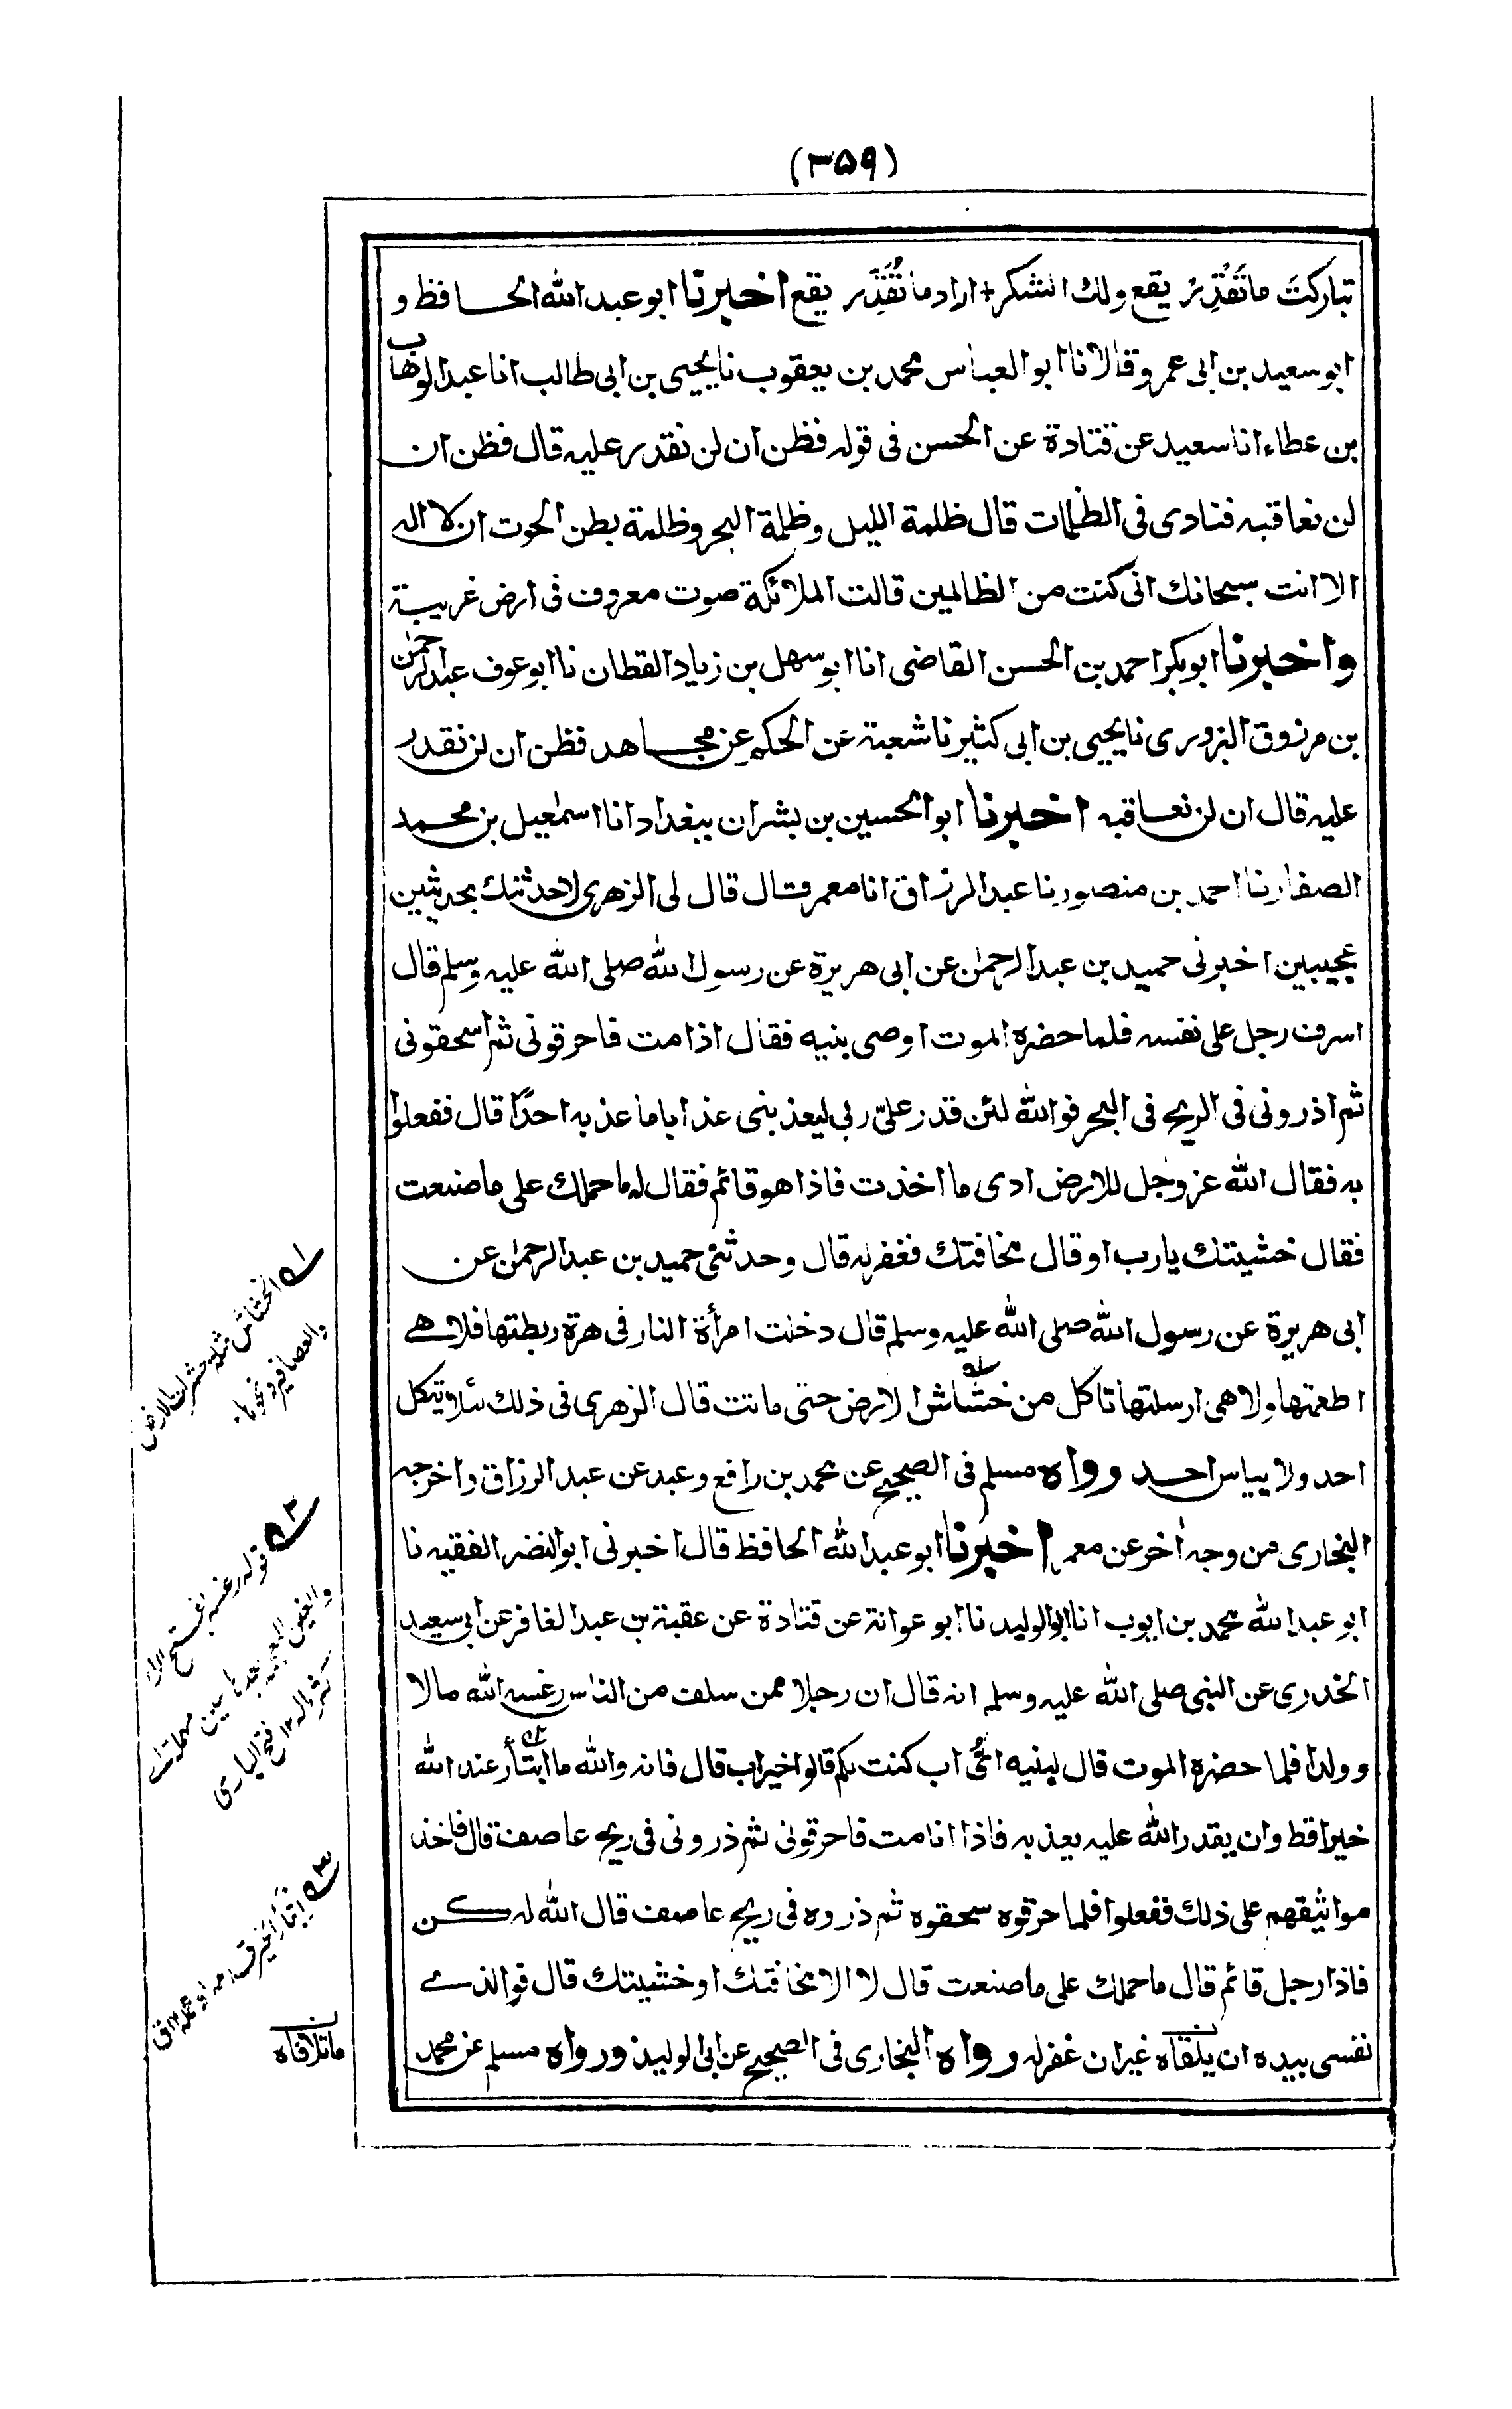 (۳۵۹)
تباركتَ ما تَقْدِرْ يقع ولك الشكر + اراد ما تُقَدِّر يقع اخبرنا ابو عبد الله الحافظ و
ابو سعيد بن ابى عمرو قالا نا ابو العباس محمد بن يعقوب نا يحيى بن ابى طالب انا عبد الوهاب
بن عطاء انا سعيد عن قتادة عن الحسن فى قوله فظن ان لن نقدر عليه قال فظن ان
لن نعاقبه فنادى فى الظلمات قال ظلمة الليل وظلمة البحر وظلمة بطن الحوت ان لا اله
الا انت سبحانك انى كنت من الظالمين قالت الملائكة صوت معروف فى ارض غريبة
واخبرنا ابو بكر احمد بن الحسن القاضى انا ابو سهل بن زياد القطان نا ابو عوف عبد الرحمٰن
بن مرزوق البزورى نا يحيى بن ابى كثير نا شعبة عن الحكم عن مجاهد فظن ان لن نقدر
عليه قال ان لن نعاقبه اخبرنا ابو الحسين بن بشران ببغداد انا اسمٰعيل بن محمد
الصفار نا احمد بن منصور نا عبد الرزاق انا معمر قال قال لى الزهرى لاحدثنك بحديثين
عجيبين اخبرنى حميد بن عبد الرحمٰن عن ابى هريرة عن رسول الله صلى الله عليه وسلم قال
اسرف رجل على نفسه فلما حضره الموت اوصى بنيه فقال اذا مت فاحرقونى ثم اسحقونى
ثم اذرونى فى الريح فى البحر فوالله لئن قدر علىّ ربى ليعذبنى عذابا ما عذبه احدًا قال ففعلوا
به فقال الله عز وجل للارض ادى ما اخذت فاذا هو قائم فقال له ما حملك على ما صنعت
فقال خشيتك يا رب او قال مخافتك فغفر له قال وحدثنى حميد بن عبد الرحمٰن عن
ابى هريرة عن رسول الله صلى الله عليه وسلم قال دخلت امرأة النار فى هرة ربطتها فلا هے
اطعمتها ولا هى ارسلتها تاكل من خشاش الارض حتى ماتت قال الزهرى فى ذلك لئلا يتكل
احد ولا ييأس احد رواه مسلم فى الصحيح عن محمد بن رافع وعبد عن عبد الرزاق واخرجه
البخارى من وجه اٰخر عن معمر اخبرنا ابو عبد الله الحافظ قال اخبرنى ابو النضر الفقيه نا
ابو عبد الله محمد بن ايوب انا ابو الوليد نا ابو عوانة عن قتادة عن عقبة بن عبد الغافر عن ابى سعيد
الخدرى عن النبى صلى الله عليه وسلم انه قال ان رجلا ممن سلف من الناس رغسه الله مالا
وولدا فلما حضره الموت قال لبنيه اىُّ اب كنت لكم قالوا خير اب قال فانه والله ما ابتأر عند الله
خيرا قط وان يقدر الله عليه يعذبه فاذا انا مت فاحرقونى ثم ذرونى فى ريح عاصف قال فاخذ
مواثيقهم على ذلك ففعلوا فلما حرقوه سحقوه ثم ذروه فى ريح عاصف قال الله له كن
فاذا رجل قائم قال ما حملك على ما صنعت قال لا الا مخافتك او خشيتك قال فوالذے
نفسى بيده ان يلقاه غير ان غفر له رواه البخارى فى الصحيح عن ابى الوليد ورواه مسلم عن محمد
۱ الخشاش مثلثة حشرات الارض
والعصافير ونحوها
۲ قوله رغسه بفتح الراء
والغين المعجمة بعدها سين مهملة اى
كثر ماله ۱۲ فتح البارى
۳ ابتأر الخير
ما تلافاه